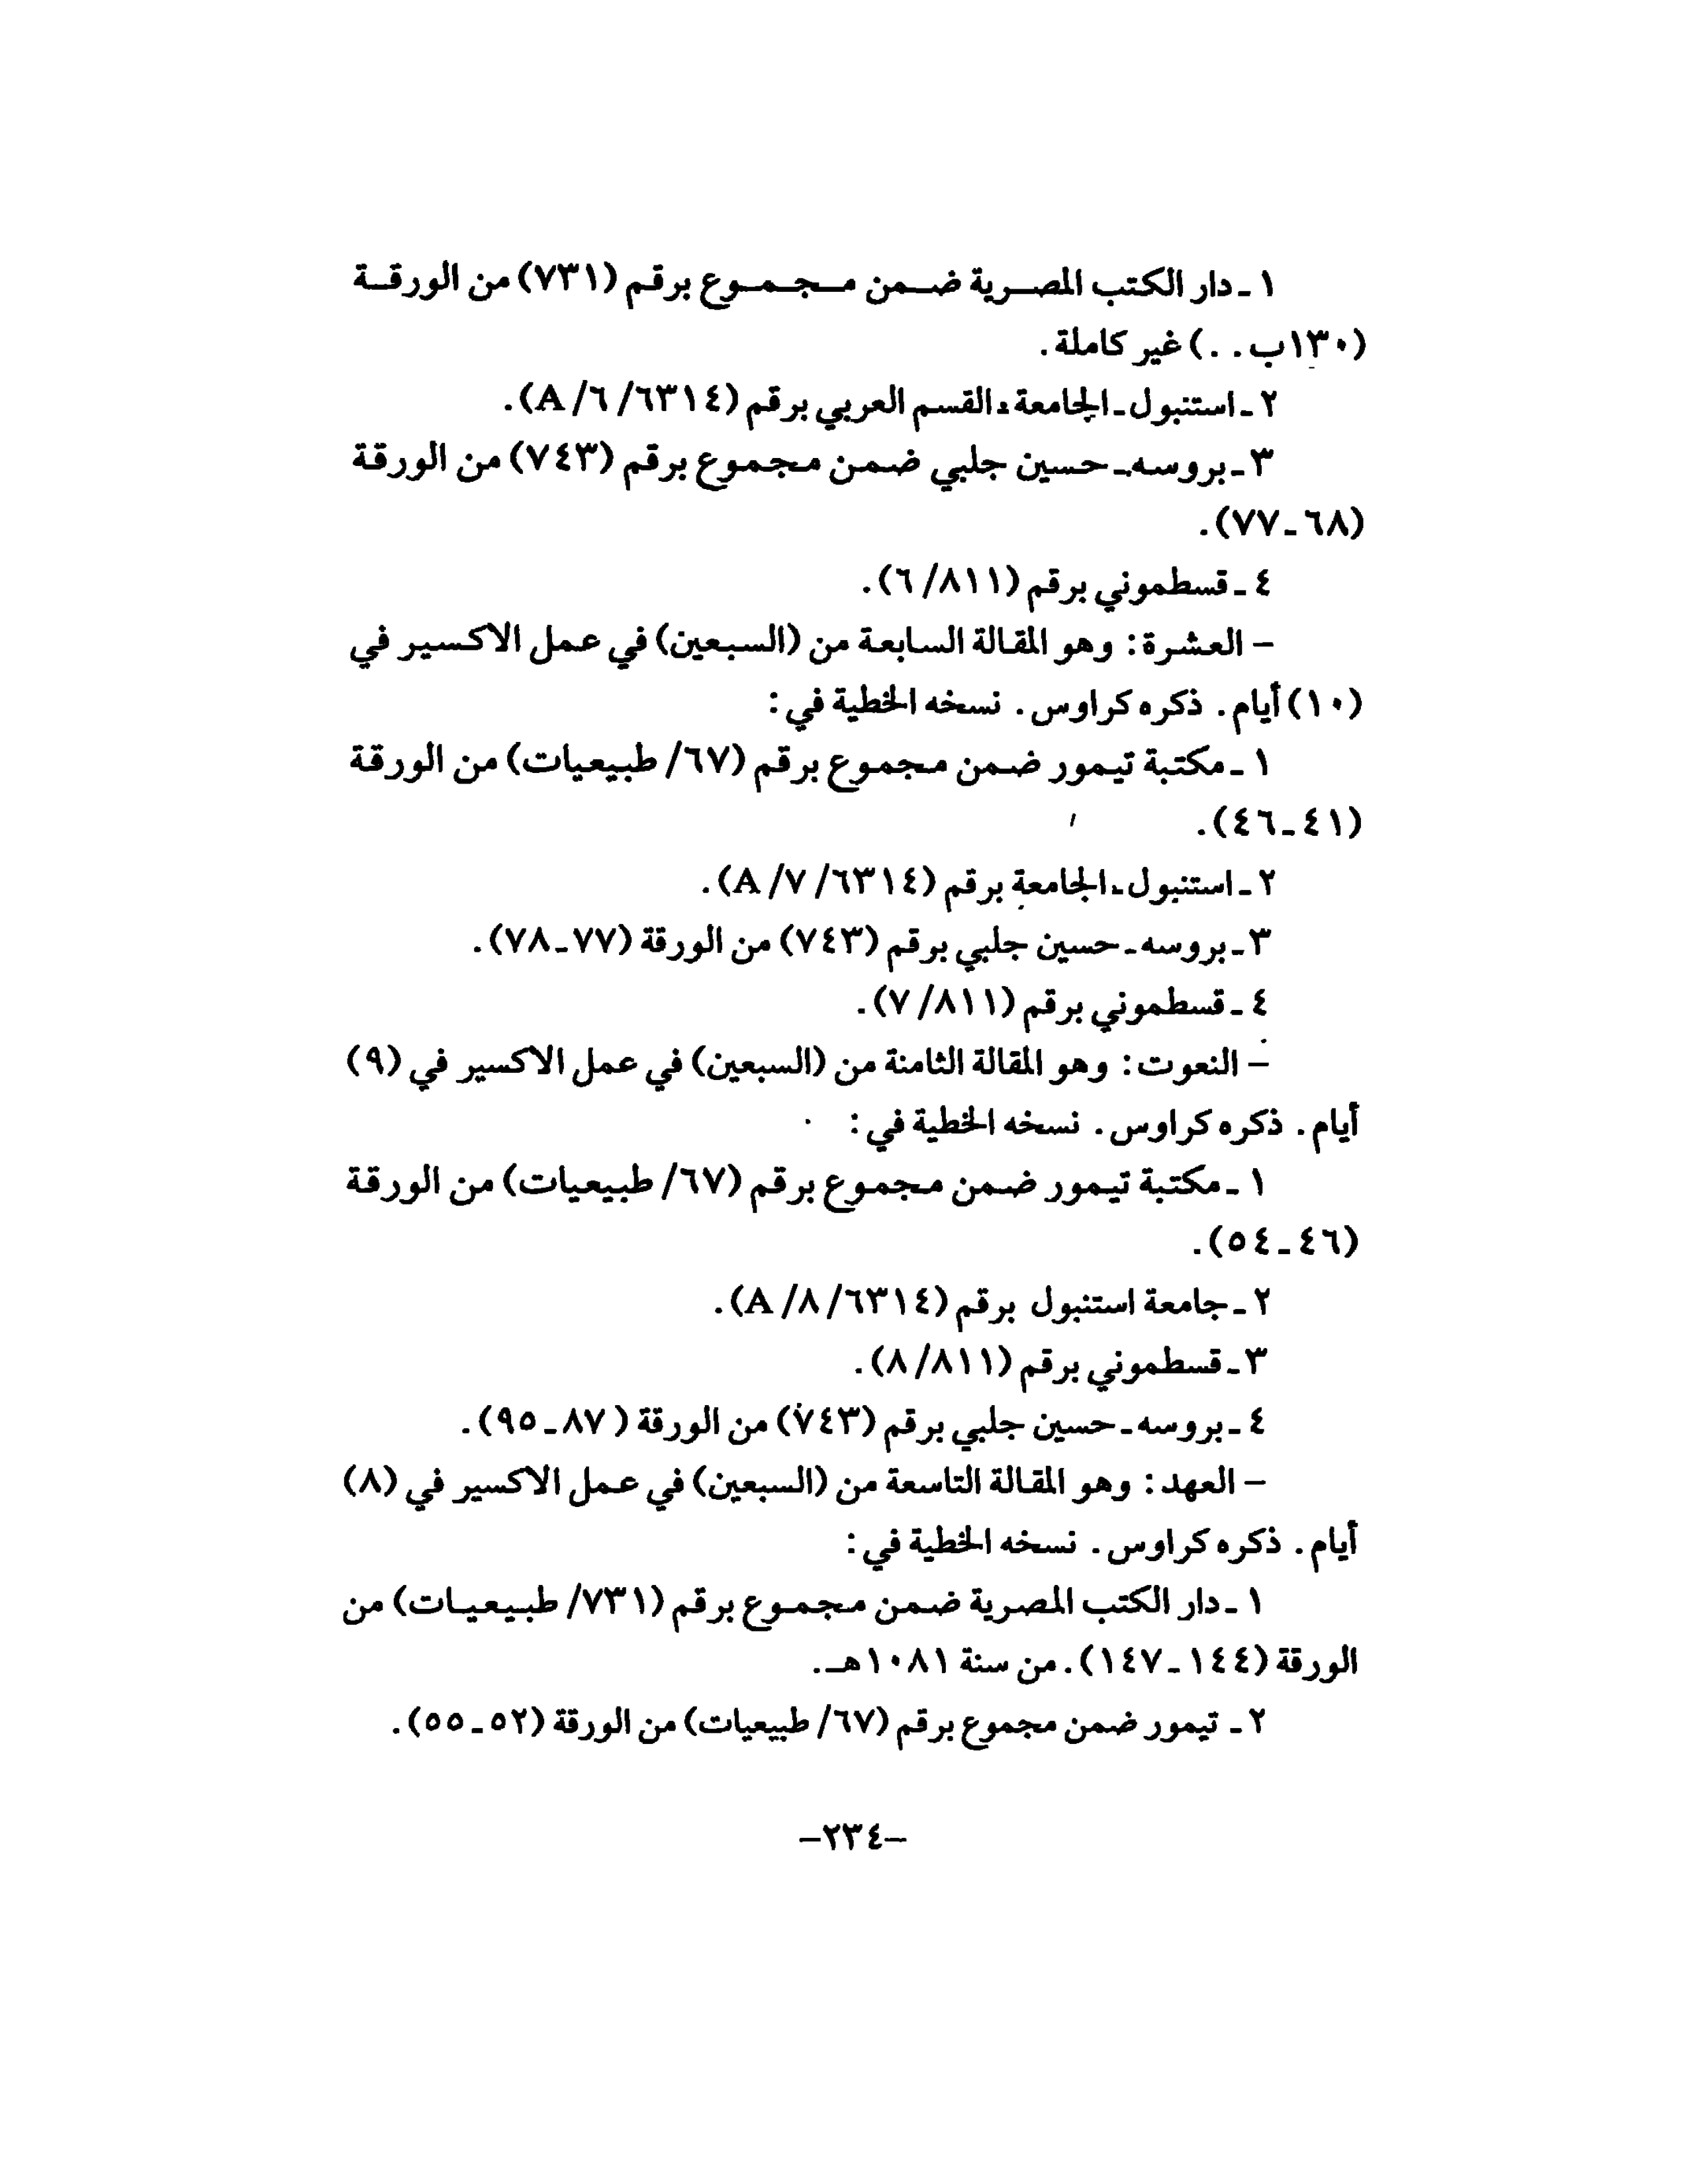 ١ ـ دار الكتب المصرية ضمن مجموع برقم (٧٣١) من الورقة
(١٣٠ب . .) غير كاملة .
٢ ـ استنبول ـ الجامعة ـ القسم العربي برقم (٦٣١٤/ ٦/ A) .
٣ ـ بروسه ـ حسين جلبي ضمن مجموع برقم (٧٤٣) من الورقة
(٦٨ ـ ٧٧) .
٤ ـ قسطموني برقم (٨١١/ ٦) .
– العشرة : وهو المقالة السابعة من (السبعين) في عمل الاكسير في
(١٠) أيام . ذكره كراوس . نسخه الخطية في :
١ ـ مكتبة تيمور ضمن مجموع برقم (٦٧/ طبيعيات) من الورقة
(٤١ ـ ٤٦) .
٢ ـ استنبول ـ الجامعة برقم (٦٣١٤/ ٧/ A) .
٣ ـ بروسه ـ حسين جلبي برقم (٧٤٣) من الورقة (٧٧ ـ ٧٨) .
٤ ـ قسطموني برقم (٨١١/ ٧) .
– النعوت : وهو المقالة الثامنة من (السبعين) في عمل الاكسير في (٩)
أيام . ذكره كراوس . نسخه الخطية في :
١ ـ مكتبة تيمور ضمن مجموع برقم (٦٧/ طبيعيات) من الورقة
(٤٦ ـ ٥٤) .
٢ ـ جامعة استنبول برقم (٦٣١٤/ ٨/ A) .
٣ ـ قسطموني برقم (٨١١/ ٨) .
٤ ـ بروسه ـ حسين جلبي برقم (٧٤٣) من الورقة (٨٧ ـ ٩٥) .
– العهد : وهو المقالة التاسعة من (السبعين) في عمل الاكسير في (٨)
أيام . ذكره كراوس . نسخه الخطية في :
١ ـ دار الكتب المصرية ضمن مجموع برقم (٧٣١/ طبيعيات) من
الورقة (١٤٤ ـ ١٤٧) . من سنة ١٠٨١هـ .
٢ ـ تيمور ضمن مجموع برقم (٦٧/ طبيعيات) من الورقة (٥٢ ـ ٥٥) .
–٢٣٤–